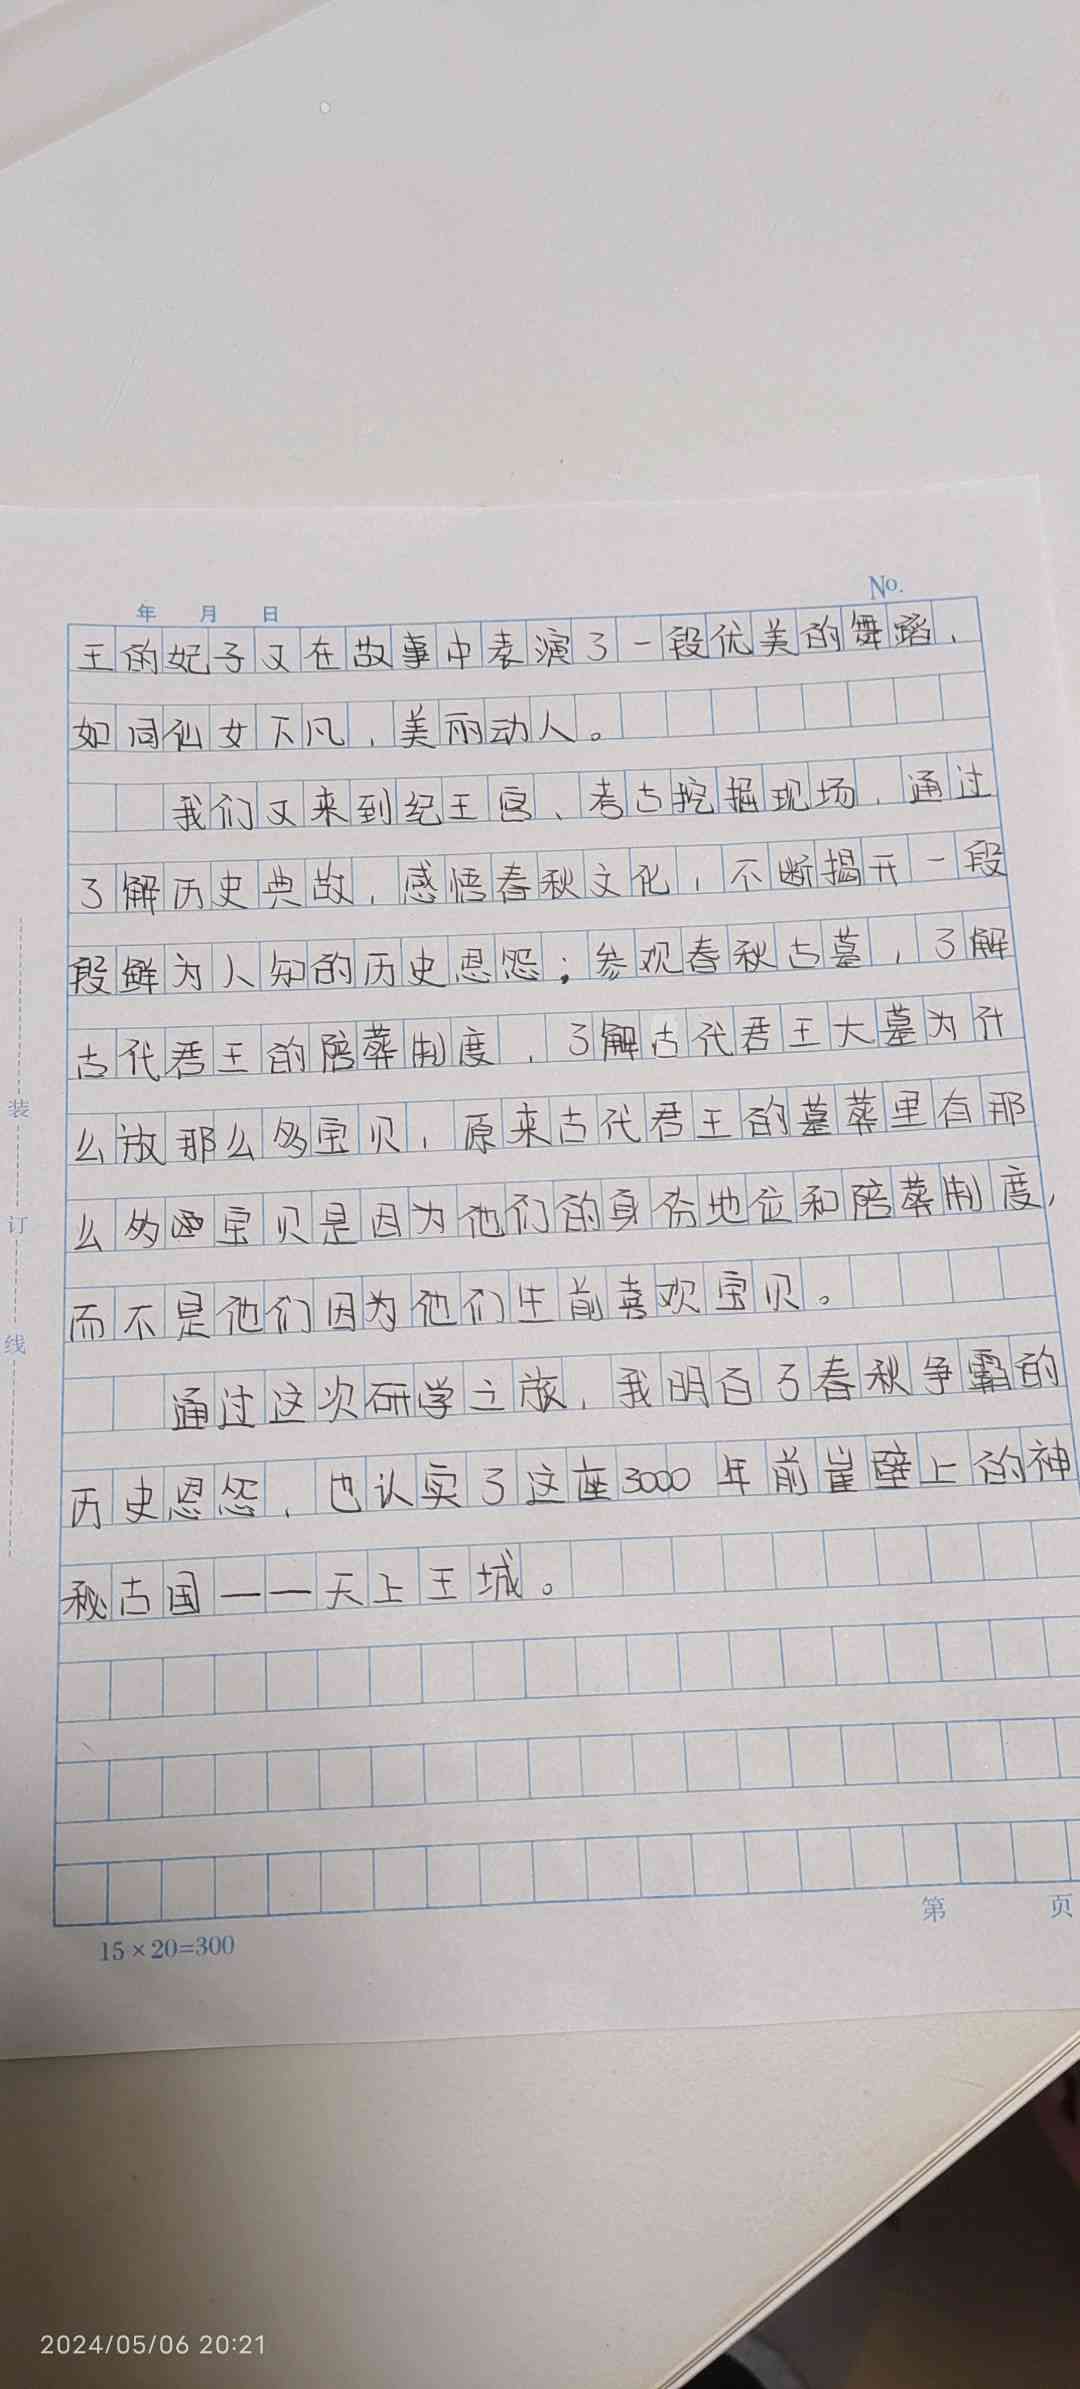 年 月 日
No.
王的妃子又在故事中表演了一段优美的舞蹈，
如同仙女下凡，美丽动人。
我们又来到纪王宫、考古挖掘现场，通过
了解历史典故，感悟春秋文化，不断揭开一段
段鲜为人知的历史恩怨；参观春秋古墓，了解
古代君王的陪葬制度，了解古代君王大墓为什
么放那么多宝贝，原来古代君王的墓葬里有那
么多宝贝是因为他们的身份地位和陪葬制度，
而不是他们因为他们生前喜欢宝贝。
通过这次研学之旅，我明白了春秋争霸的
历史恩怨，也认实了这座3000年前崖壁上的神
秘古国——天上王城。
装
订
线
第 页
15×20=300
2024/05/06 20:21